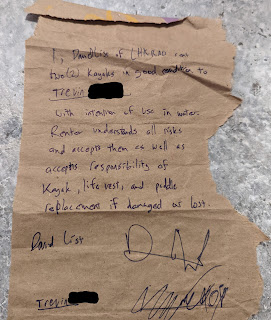 I, David List of LHRRAD rent
two (2) Kayaks in good condition to
Trevin
with intention of use in water.
Renter understands all risks
and accepts them as well as
accepts responsibility of
Kayak, life vest, and paddle
replacement if damaged or lost.
David List
Trevin